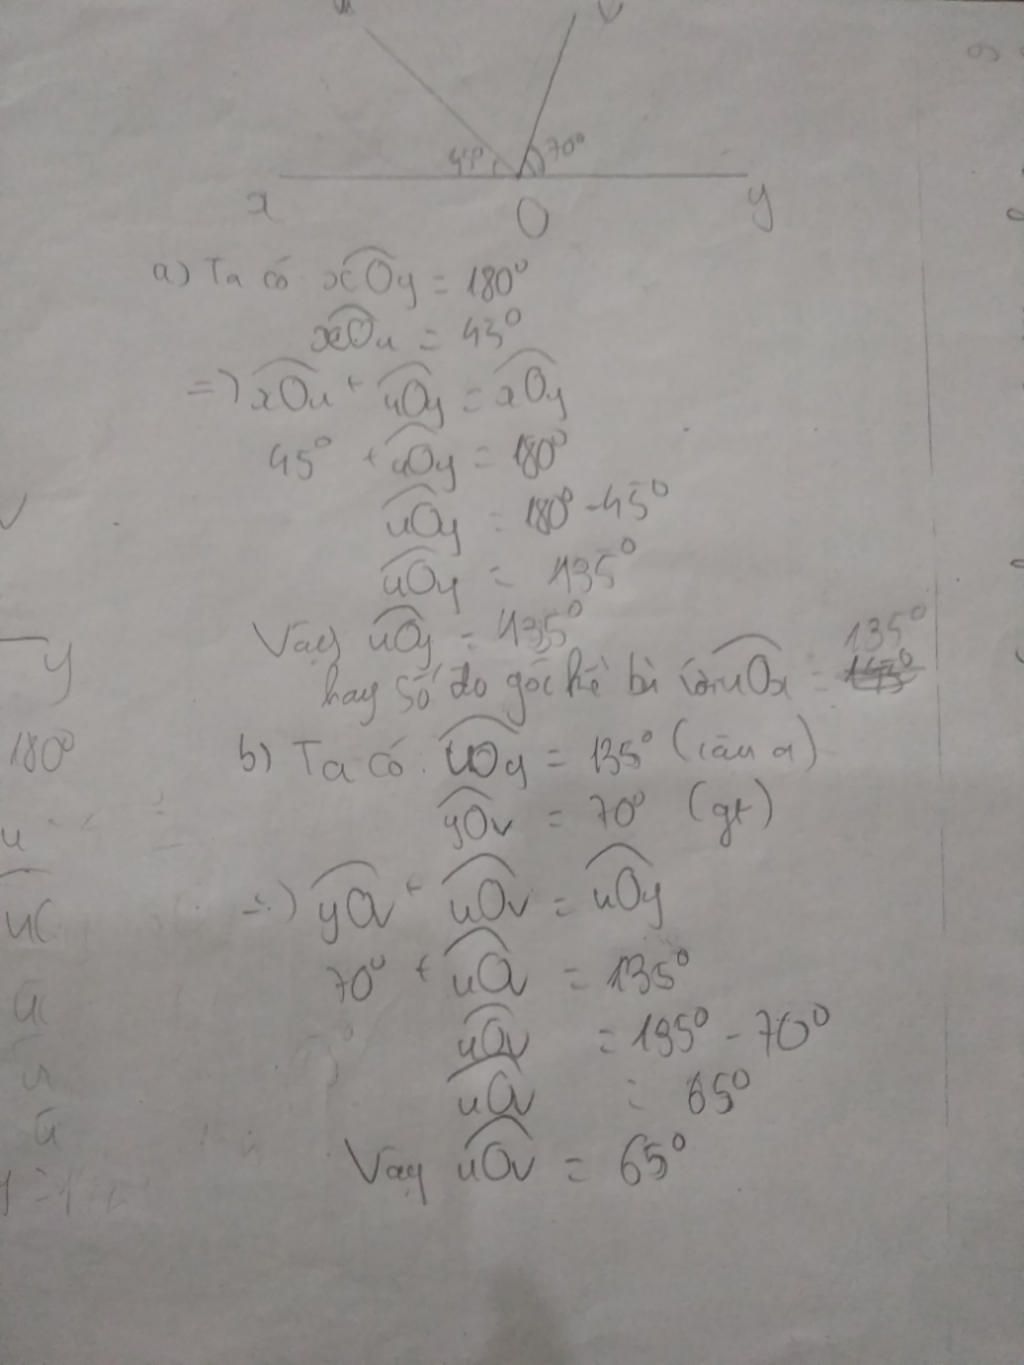 45° 70°
x O y
a) Ta có xOy = 180°
xOu = 45°
=> xOu + uOy = xOy
45° + uOy = 180°
uOy = 180° - 45°
uOy = 135°
Vậy uOy = 135°
135°
hay số đo góc kề bù với uOx =
b) Ta có: uOy = 135° (câu a)
yOv = 70° (gt)
=> yOv + uOv = uOy
70° + uOv = 135°
uOv = 135° - 70°
uOv = 65°
Vậy uOv = 65°
y
180°
u